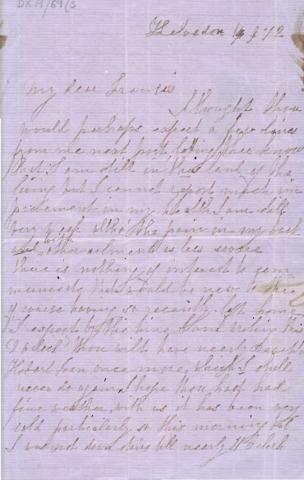 DX19/69/3
Kelvedon 19 9 72
My dear Francis
I thought thou
would perhaps expect a few lines
from me next post letting thee know
that I am still in this land of the
living but I cannot report much im
provement in my health I am still
very weak altho the pain in my back
and other ailments is less severe
there is nothing of interest to com
municate that would be new to thee
of course having so recently left home
I expect by this time 
O'clock thou wilt have nearly 
Hobart Town once more which I shall
never do again I hope thou hast had
fine weather with us it has been very
cold particularly so this morning but
I was not down stairs till nearly 11 O'clock